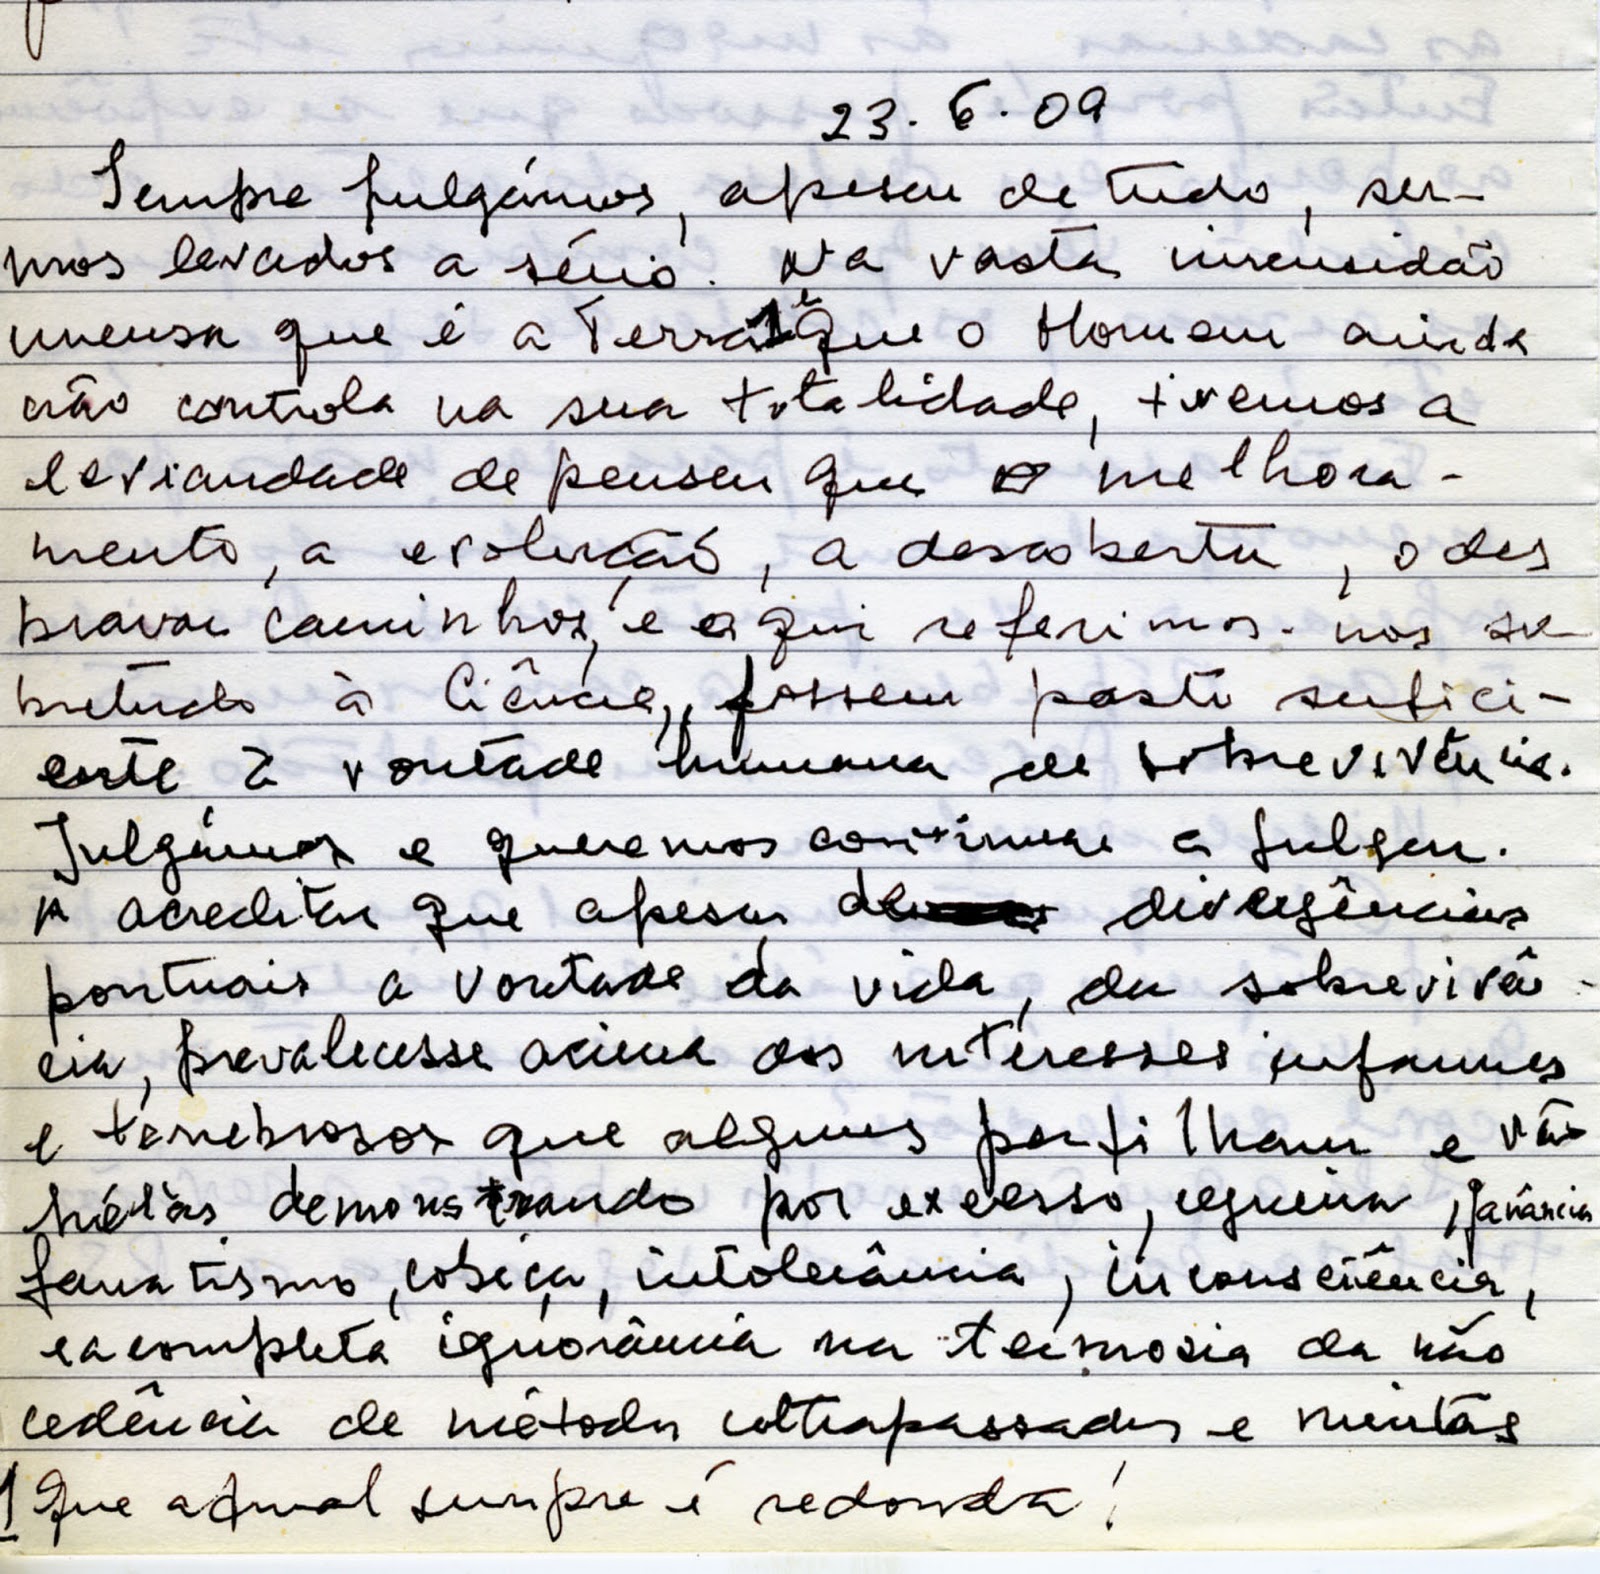 23. 6. 09
Sempre julgámos, apesar de tudo, ser-
mos levados a sério. Na vasta imensidão
imensa que é a Terra 1 que o Homem ainda
não controla na sua totalidade, tivemos a
leviandade de pensar que o melhora-
mento, a evolução, a descoberta, o des
bravar caminhos, e aqui referimos-nos so
bretudo à Ciência, fossem pasto sufici-
ente à vontade humana de sobrevivência.
Julgámos e queremos continuar a julgar.
A acreditar que apesar de divergências
pontuais a vontade da vida, da sobrevivên-
cia, prevalecesse acima dos interesses infames
e tenebrosos que alguns perfilham e vão
demonstrando por excesso, cegueira, ganância
fanatismo, cobiça, intolerância, inconsciência,
e a completa ignorância na teimosia da não
cedência de métodos ultrapassados e muitas
1 Que afinal sempre é redonda!